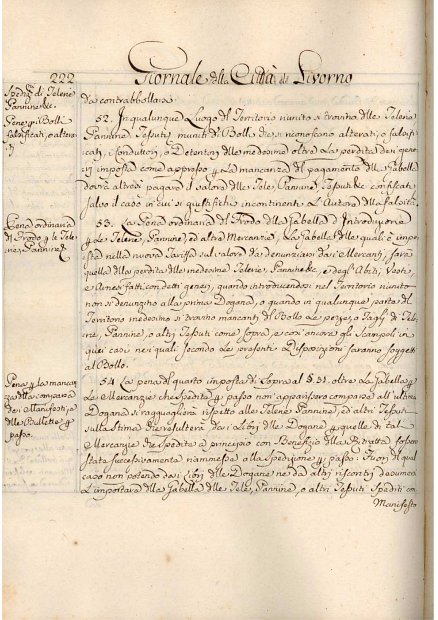 222
Giornale della Città di Livorno
Spediz.ⁱ di Telerie
Pannine &c.
Pene pⁱ Bolli
falsificati, o altera-
ti
da contrabbollarsi.
52. In qualunque Luogo del Territorio riunito si trovino delle Telerie
Pannine, Tessuti muniti di Bolli, che si riconoscano alterati, o falsifi-
cati, i Conduttori, o Detentori delle medesime oltre la perdita dei gene-
ri imposta come appresso per la mancanza del pagamento della Gabella
dovrà altresì pagare il valore delle Tele, Pannine, Tessuti &c. confiscati,
salvo il caso in cui si giustifichi incontinenti l'Autore della falsità.
Pena ordinaria
di Frodo per le Tele-
rie, e Pannine &c.
53. La Pena ordinaria del Frodo della Gabella d'Introduzione
per le Telerie, Pannine, ed altre Mercanzie, la Gabella delle quali è impo-
sta nella nuova Tariffa sul valore da denunziarsi dai Mercanti, sarà
quella della perdita delle medesime Telerie, Pannine &c., e degl'Abiti, Vesti,
e Arnesi fatti con detti generi, quando introducendosi nel Territorio riunito
non si denunzino alla prima Dogana, o quando in qualunque parte del
Territorio medesimo si trovino mancanti del Bollo le pezze, o Tagli di Tele-
rie, Pannine, o altri Tessuti come sopra, e così ancora gli Scampoli in
quei casi nei quali secondo le presenti Disposizioni saranno soggetti
al Bollo.
Pena per la mancan-
za della comparsa
dei Manifesti, e
delle Bullette per
passo.
54. La pena del quarto imposta di sopra al §. 31. oltre la Gabella per
le Mercanzie che spedite per passo non apparissero comparse all'ultima
Dogana si ragguaglierà rispetto alle Telerie Pannine, ed altri Tessuti
sulla Stima che resulterà dai Libri delle Dogane per quelle di tali
Mercanzie che spedite a principio con Benefizio della Ritratta fossero
state successivamente rammesse alla spedizione per passo: Fuori del qual
caso non potendo dai Libri delle Dogane nè da altri riscontri desumer-
si l'importare della Gabella delle Tele, Pannine, o altri Tessuti spediti con
Manifesto